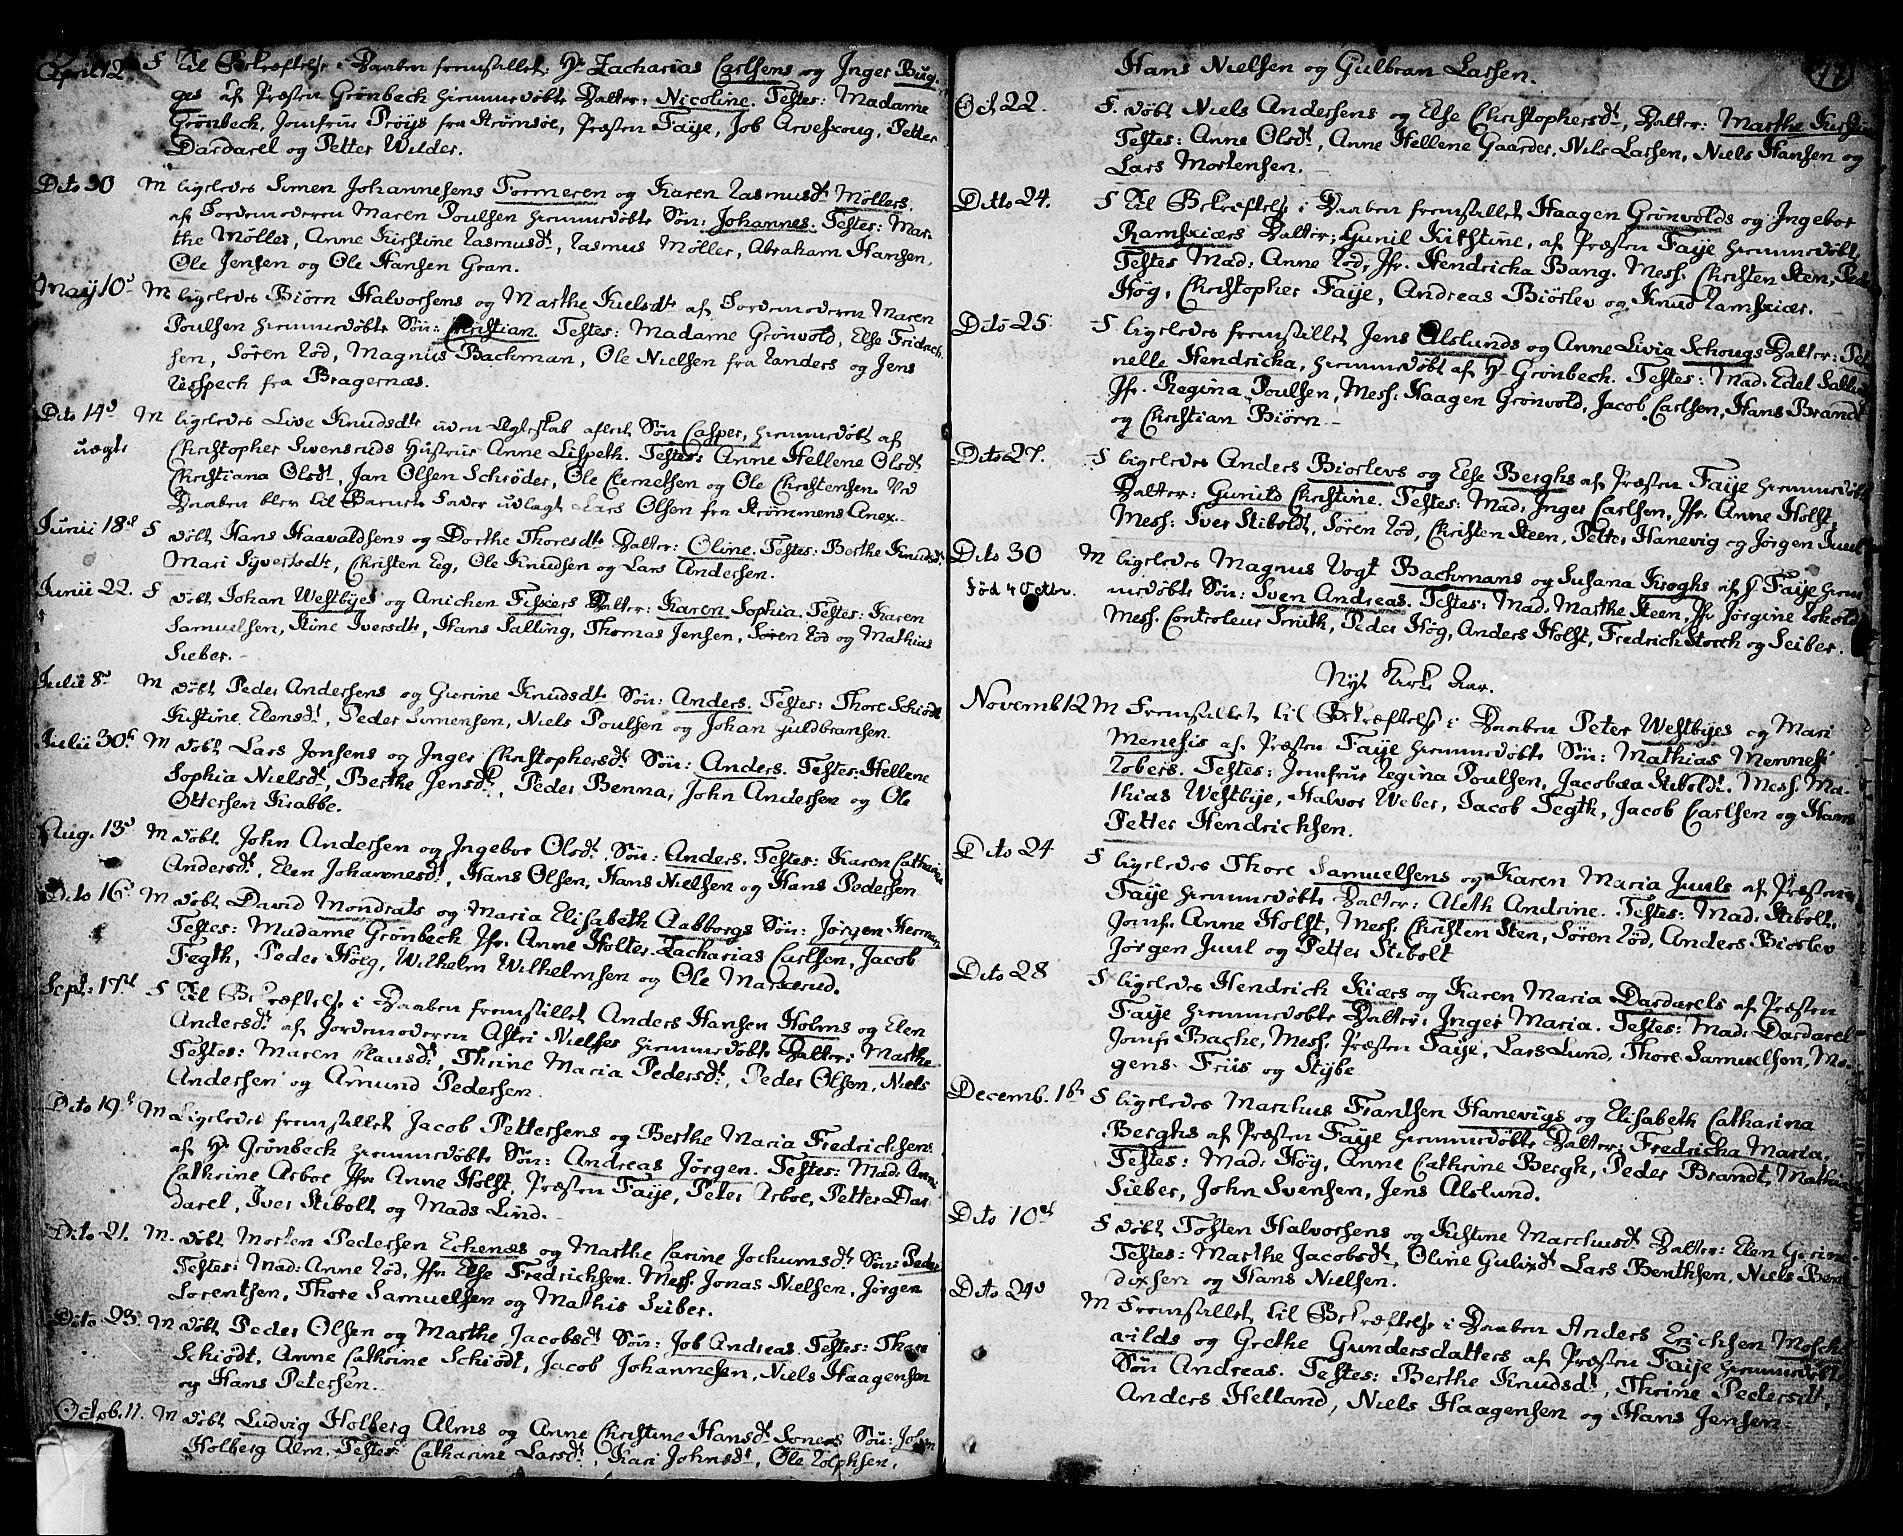 April 12 F Til Bekræftelse i Daaben fremstillet Hr Zacharias Carlsens og Inger Bug-
ges af Præsten Grønbeck hiemmedøbte Datter: Nicoline. Testes: Madame
Grønbeck, Jomfrue Prøys fra Strømsøe, Præsten Faÿe, Job Arveskoug, Petter
Dardarel og Petter Wilder.
Dito 30 M ligeledes Simen Johannesens Formeren og Karen Rasmusdt Møllers
af Jordemoderen Maren Poulsen hiemmedøbte Søn: Johannes. Testes: Mar-
the Møller, Anne Kirstine Rasmusdt, Rasmus Møller, Abraham Hansen,
Ole Jensen og Ole Hansen Gran.
Maÿ 10d M ligeledes Biørn Halvorsens og Marthe Kielsdt af Jordemoderen Maren
Poulsen hiemmedøbte Søn: Christian. Testes: Madame Grønvold, Else Fridrich-
sen, Søren Rød, Magnus Bachman, Ole Nielsen fra Randers og Jens
Risspech fra Bragernæs.
Dito 14d M ligeledes Live Knudsdt uden Egteskab aflet Søn Casper, hiemmedøbt af
uægte Christopher Svensruds Hustrue Anne Lispeth. Testes Anne Hellene Olsdt
Christiana Olsdt, Jan Olsen Schrøder, Ole Clemetsen og Ole Christensen. Ved
Daaben blev til Barnets Fader udlagt Lars Olsen fra Strømmens Anex.
Junii 18d F døbt Hans Haavaldsens og Dorthe Thoresdt Datter: Oline. Testes: Berthe Knudsdt
Mari Syvertsdt, Christen Eeg, Ole Knudsen og Lars Andersen.
Junii 22. F døbt Johan Westbÿes og Anichen Fiskers Datter: Karen Sophia. Testes: Karen
Samuelsen, Stine Iversdt, Hans Salling, Thomas Jensen, Søren Rød og Mathias
Sieber.
Julii 8d M døbt Peder Andersens og Gurine Knudsdt Søn: Anders. Testes: Thore Schiødt
Kistine Elensdt, Peder Simensen, Niels Poulsen og Johan Guldbransen.
Julii 30t M døbt Lars Jonsens og Inger Christophersdt Søn: Anders. Testes: Hellene
Sophia Nielsdt, Berthe Jensdt, Peder Benna, John Andersen og Ole
Ottersen Krabbe.
Aug. 13d M døbt John Andersen og Ingebor Olsdt Søn: Anders. Testes: Karen Cathrine
Andersdt, Elen Johannesdt, Hans Olsen, Hans Nielsen og Hans Pedersen
Dito 16d M døbt David Mondrats og Maria Elisabeth Aabborgs Søn: Jørgen Herman
Testes: Madame Grønbeck Jfr. Anne Holter. Zacharias Carlsen, Jacob
Tegth, Peder Høeg, Wilhelm Wilhelmsen og Ole Markerud.
Sept: 17d F Til Bekræftelse i Daaben fremstillet Anders Hansen Holms og Elen
Andersdt af Jordemoderen Astri Nielses hiemmedøbte Datter: Marthe
Testes: Maren Clausdt, Thrine Maria Pedersdt, Peder Olsen, Niels
Andersen og Amund Pedersen.
Dito 19d M Ligeledes fremstillet Jacob Pettersens og Berthe Maria Fredrichsens
af Hr Grønbeck hiemmedøbte Søn: Andreas Jørgen. Testes: Mad. Anne
Cathrine Arboe Jfr Anne Holst Præsten Faÿe, Peter Arboe, Petter Dar-
darel, Iver Stibolt og Mads Lind.
Dito 21. M. døbt Morten Pedersen Echenæs og Marthe Carine Jochumsdt Søn: Peder
Testes: Mad: Anne Rød, Jfr. Else Fredrichsen. Mess. Jonas Nielsen, Jørgen
Lorentsen, Thore Samuelsen og Mathis Seiber.
Dito 23. M døbt Peder Olsen og Marthe Jacobsdt Søn: Job Andreas Testes: Thore
Schiødt, Anne Cathrine Schiødt, Jacob Johannesen, Niels Haagensen
og Hans Petersen.
Octob. 11. M døbt Ludvig Holberg Alms og Anne Christine Hansdt Soners Søn: John
Holberg Alm. Testes: Catharine Larsdt, Kari Johnsdt, Ole Rolphsen,
77
Hans Nielsen og Gulbran Larsen.
Oct 22. F. døbt Niels Andersens og Else Christophersdt, Datter: Marthe Kirstine
Testes: Anne Olsdt, Anne Hellene Gaarder, Nils Larsen, Niels Hansen og
Lars Mortensen.
Ditto 24. F Til Bekræftelse i Daaben fremstillet Haagen Grønvolds og Ingebor
Ramskiærs Datter: Gunil Kirstine, af Præsten Faÿe hiemmedøbt,
Testes Mad: Anne Rød, Jfr. Hendricka Bang. Mess. Christen Sten, Peder
Høg, Christopher Faÿe, Andreas Biørslev og Knud Ramskiær.
Dito 25. F ligeledes fremstillet Jens Alslunds og Anne Livia Schougs Datter: Pet-
nelle Hendricka, hiemmedøbt af Hr Grønbeck. Testes: Mad. Edel Salling
Jfr. Regina Poulsen, Mess: Haagen Grønvold, Jacob Carlsen, Hans Brandt
og Christian Biørn.
Dito 27. F ligeledes Anders Biørslevs og Else Berghs af Præsten Faÿe hiemmedøbt
Datter: Gunild Christine. Testes: Mad. Inger Carlsen, Jfr. Anne Holst,
Mess: Iver Stiboldt, Søren Rød, Christen Steen, Petter Hanevig og Jørgen Juul
Dito 30 M ligeledes Magnus Vogt Bachmans og Susana Kroghs af P Faÿe hiem-
fød 4 Octbr. medøbte Søn: Sven Andreas. Testes: Mad. Marthe Steen, Jfr Jørgine
Mess. Controleur Smith, Peder Høg, Anders Holst, Fredrich Storch og Seiber.
Nyt Kirke Aar.
Novemb 12 M Fremstillet til Bekræftelse i Daaben Peter Westbÿes og Mari
Menesis af Præsten Faÿe hiemmedøbte Søn: Mathias Mennesi
Robers. Testes: Jomfrue Regina Poulsen, Jacobæa Stiboldt. Mess. Ma-
thias Westbÿe, Halvor Weber, Jacob Tegth, Jacob Carlsen og Hans
Petter Hendrichsen.
Dito 24 F ligeledes Thore Samuelsens og Karen Maria Juuls af Præsten
Faÿe hiemmedøbte Datter: Aleth Andrine. Testes: Mad. Stibolt.
Jomf. Anne Holst, Mess. Christen Sten, Søren Rød, Anders Biørslev
Jørgen Juul og Petter Stibolt
Dito 28 F ligeledes Hendrich Kiærs og Karen Maria Dardarels af Præsten
Faÿe hiemmedøbte Datter: Inger Maria. Testes: Mad: Dardarel
Jomf. Bache, Mess. Præsten Faÿe, Lars Lund, Thore Samuelsen, Mo-
gens Friis og Stÿbe
Decemb. 1st F ligeledes Marchus Frantsen Hanevigs og Elisabeth Catharina
Berghs af Præsten Faÿe hiemmedøbte Datter: Fredricha Maria.
Testes: Mad: Høÿ, Anne Cathrine Bergh, Peder Brandt, Mathias
Sieber, John Svensen, Jens Alslund.
Dito 10d F døbt Tosten Halvorsens og Kistine Marchusdt Datter: Elen Gurine
Testes: Marthe Jacobsdt, Oline Gulixdt Lars Benthsen, Niels Ben-
dixsen og Hans Nielsen.
Dito 24d M Fremstillet til Bekræftelse i Daaben Anders Erichsen Mosche-
vilds og Grethe Gundersdatters af Præsten Faÿe hiemmedøbte
Søn Andreas. Testes: Berthe Knudsdt, Thrine Pedersdt,
Anders Helland, Niels Haagensen og Hans Jensen.